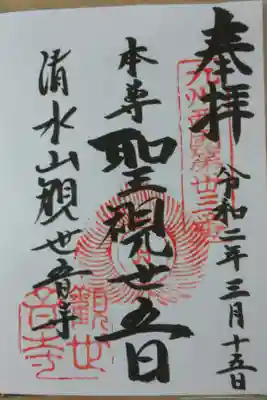 奉拝
九州西國第卅三番
令和二年三月十五日
本尊
聖観世音
清水山観世音寺
觀世音寺